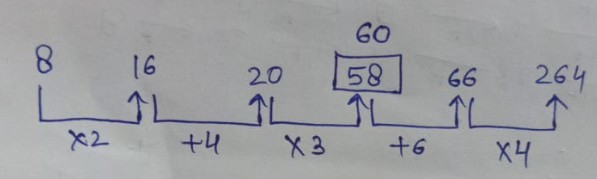 60
8 16 20 58 66 264
×2 +4 ×3 +6 ×4